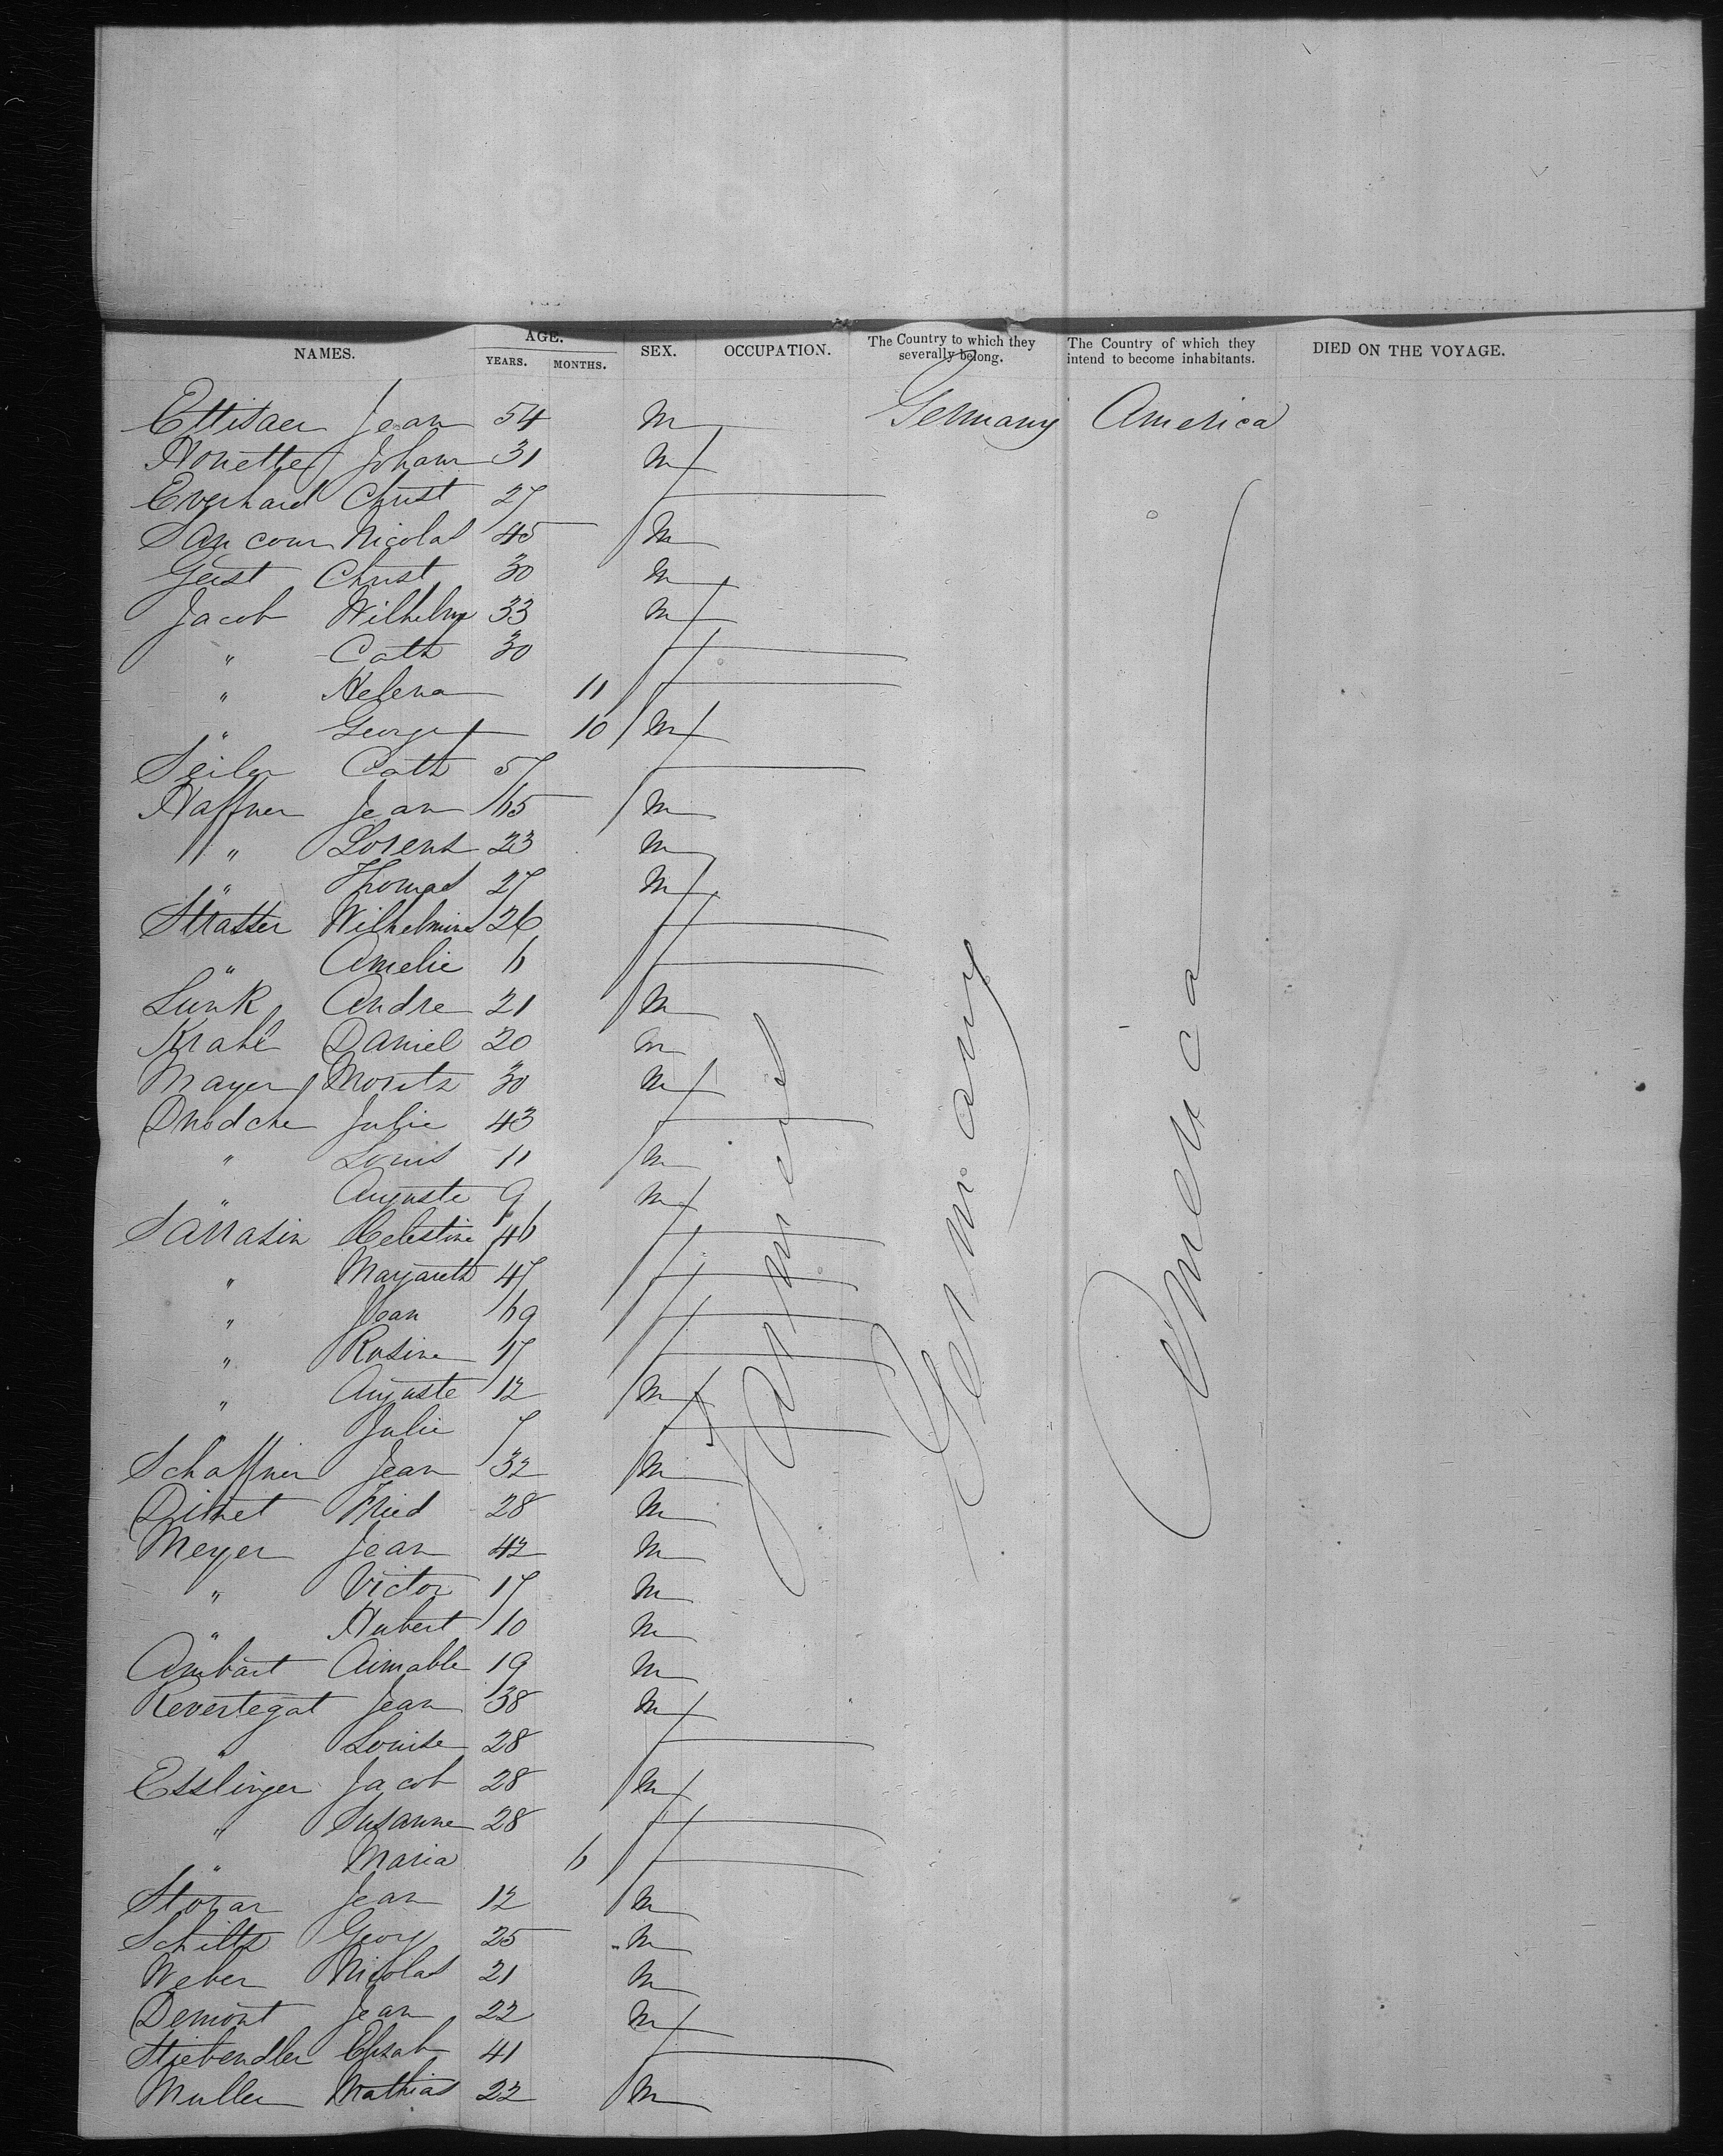 NAMES. AGE. YEARS. MONTHS. SEX. OCCUPATION. The Country to which they severally belong. The Country of which they intend to become inhabitants. DIED ON THE VOYAGE.
Jean 54 M Germany America
Johann 31 M
Everhard Christ 27 F
Nicolas 45 M
Geist Christ 30 M
Jacob Wilhelm 33 M
" Cath 30 F
" Helena 11 F
" George 10 M
Seiler Cath 57 F
Haffner Jean 65 M
" Lorens 23 M
" Thomas 27 M
Strasser Wilhelmine 26 F
" Amelie 6 F
Lunk Andre 21 M
Krahe Daniel 20 M
Mayer Moritz 30 M
Julie 43 F
" Louis 11 M
" Auguste 9 M
Sarrasin Celestine 46 F
" Margareth 47 F
" Jean 69 F
" Rosine 17 F
" Auguste 12 M
" Julie 7 F
Schaffner Jean 32 M
Fried 28 M
Meyer Jean 42 M
" Victor 17 M
" Hubert 10 M
Aimable 19 M
Revertegat Jean 38 M
" Louise 28 F
Esslinger Jacob 28 M
" Susanne 28 F
" Maria 6 F
Jean 12 M
Schiltz Georg 25 M
Weber Nicolas 21 M
Demont Jean 22 M
Stiebendler Elisab 41 F
Muller Mathias 22 M
Farmers
Germany
America